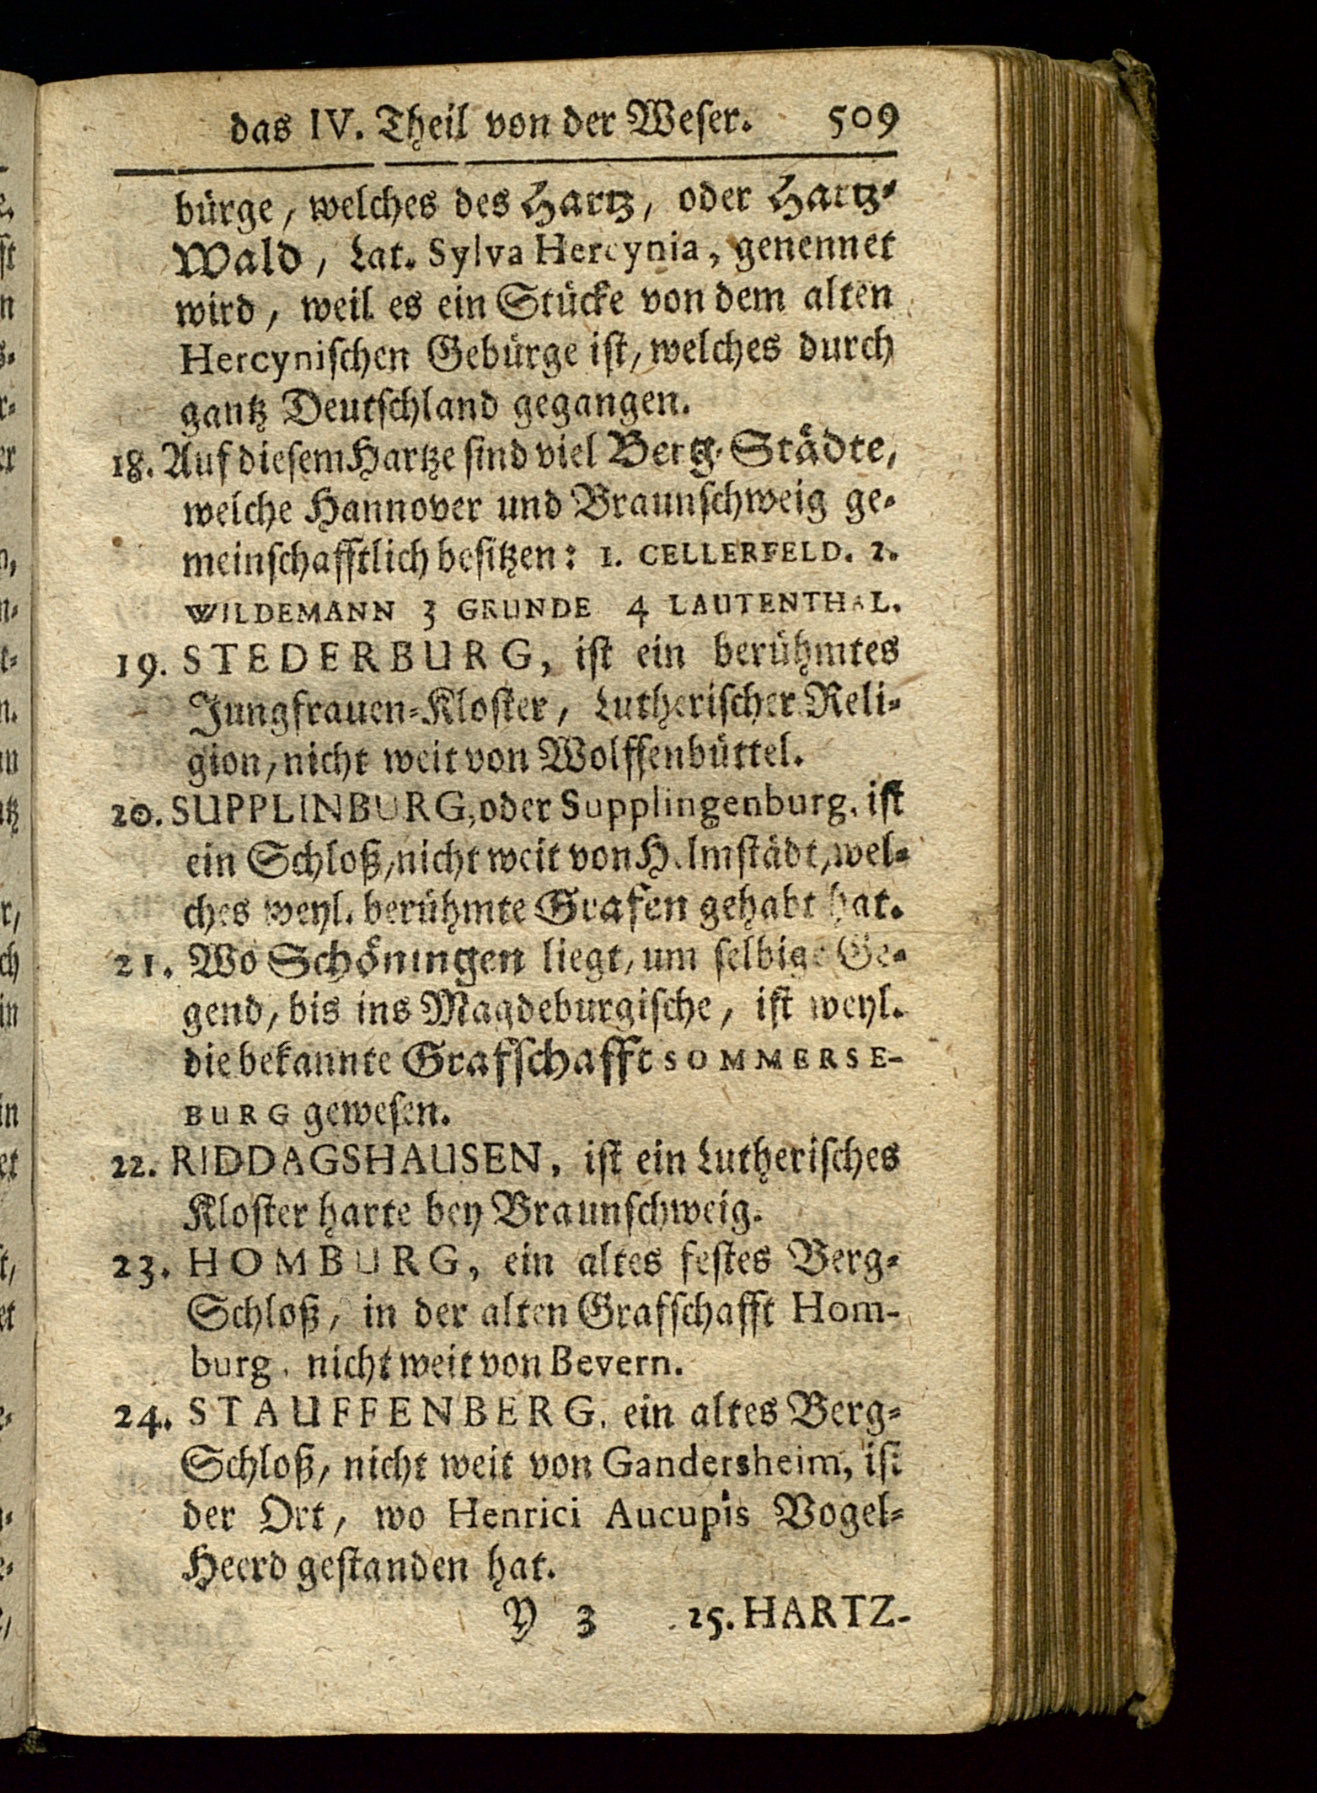 das IV. Theil von der Weser. 509
bürge, welches des Hartz, oder Hartz-
Wald, Lat. Sylva Hercynia, genennet
wird, weil es ein Stücke von dem alten
Hercynischen Gebürge ist, welches durch
gantz Deutschland gegangen.
18. Auf diesem Hartze sind viel Berg-Städte,
welche Hannover und Braunschweig ge-
meinschafftlich besitzen: 1. CELLERFELD. 2.
WILDEMANN 3 GRUNDE 4 LAUTENTHAL.
19. STEDERBURG, ist ein berühmtes
Jungfrauen-Kloster, Lutherischer Reli-
gion, nicht weit von Wolffenbüttel.
20. SUPPLINBURG, oder Supplingenburg, ist
ein Schloß, nicht weit von H.lmstädt, wel-
ches weyl. berühmte Grafen gehabt hat.
21. Wo Schöningen liegt, um selbige Ge-
gend, bis ins Magdeburgische, ist weyl.
die bekannte Grafschafft SOMMERSE-
BURG gewesen.
22. RIDDAGSHAUSEN, ist ein Lutherisches
Kloster harte bey Braunschweig.
23. HOMBURG, ein altes festes Berg-
Schloß, in der alten Grafschafft Hom-
burg, nicht weit von Bevern.
24. STAUFFENBERG, ein altes Berg-
Schloß, nicht weit von Gandersheim, ist
der Ort, wo Henrici Aucupis Vogel-
Heerd gestanden hat.
Y 3 25. HARTZ-